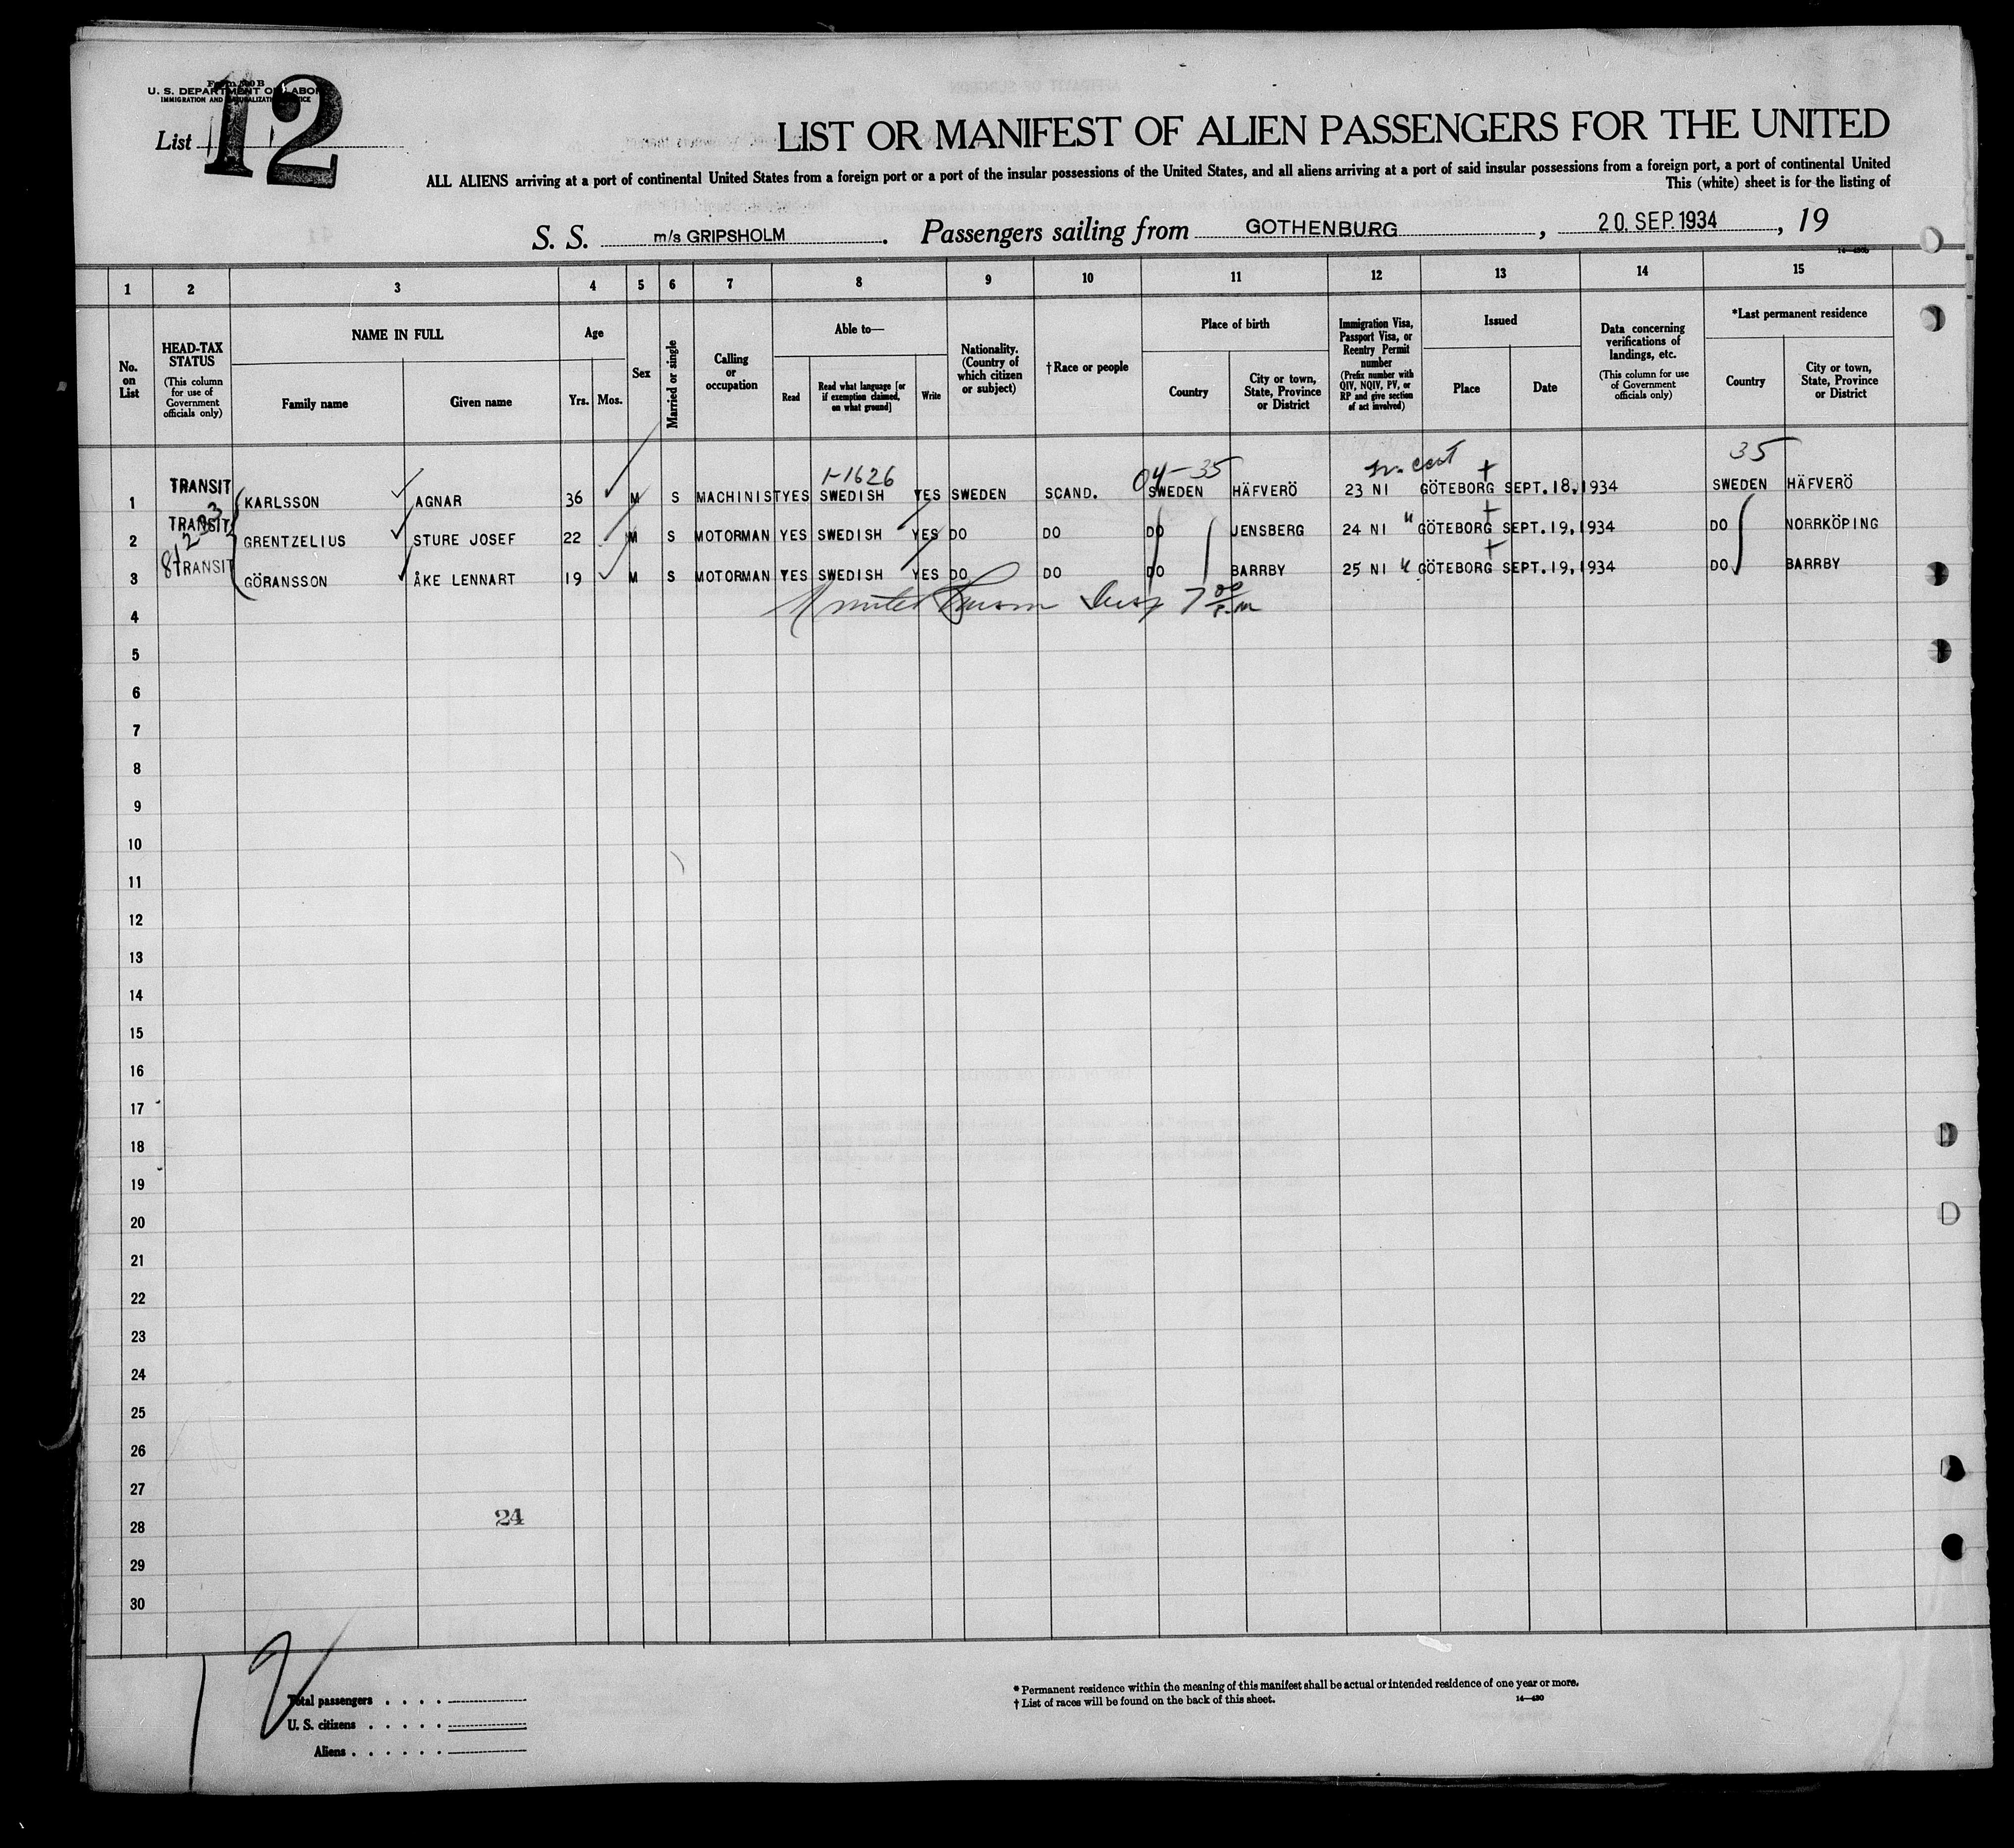 Form 500 B
U. S. DEPARTMENT OF LABOR
IMMIGRATION AND NATURALIZATION SERVICE
List 12
LIST OR MANIFEST OF ALIEN PASSENGERS FOR THE UNITED
ALL ALIENS arriving at a port of continental United States from a foreign port or a port of the insular possessions of the United States, and all aliens arriving at a port of said insular possessions from a foreign port, a port of continental United
This (white) sheet is for the listing of
S. S. m/s GRIPSHOLM. Passengers sailing from GOTHENBURG, 20. SEP. 1934, 19
1 2 3 4 5 6 7 8 9 10 11 12 13 14 15
No. on List
HEAD-TAX STATUS
(This column for use of Government officials only)
NAME IN FULL
Family name
Given name
Age
Yrs.
Mos.
Sex
Married or single
Calling or occupation
Able to—
Read
Read what language [or if exemption claimed, on what ground]
Write
Nationality. (Country of which citizen or subject)
†Race or people
Place of birth
Country
City or town, State, Province or District
Immigration Visa, Passport Visa, or Reentry Permit number
(Prefix number with QIV, NQIV, PV, or RP and give section of act involved)
Issued
Place
Date
Data concerning verifications of landings, etc.
(This column for use of Government officials only)
*Last permanent residence
Country
City or town, State, Province or District
1-1626 04-35 35
1 TRANSIT KARLSSON AGNAR 36 M S MACHINIST YES SWEDISH YES SWEDEN SCAND. SWEDEN HÄFVERÖ 23 NI GÖTEBORG SEPT.18,1934 SWEDEN HÄFVERÖ
2 TRANSIT GRENTZELIUS STURE JOSEF 22 M S MOTORMAN YES SWEDISH YES DO DO DO JENSBERG 24 NI " GÖTEBORG SEPT.19,1934 DO NORRKÖPING
3 TRANSIT GÖRANSSON ÅKE LENNART 19 M S MOTORMAN YES SWEDISH YES DO DO DO BARRBY 25 NI " GÖTEBORG SEPT.19,1934 DO BARRBY
4
5
6
7
8
9
10
11
12
13
14
15
16
17
18
19
20
21
22
23
24
25
26
27
24
28
29
30
Total passengers . . . .
U. S. citizens . . . . .
Aliens . . . . . .
* Permanent residence within the meaning of this manifest shall be actual or intended residence of one year or more.
† List of races will be found on the back of this sheet.
14—430